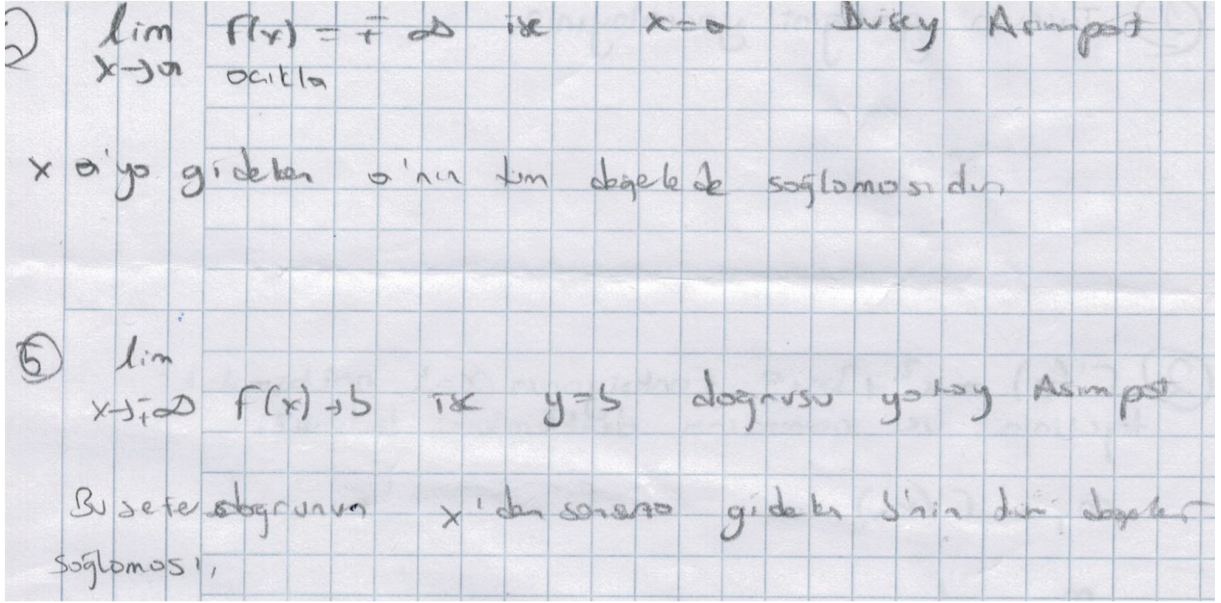 lim f(x) = ∓ ∞ ise x=a Düşey Asimpot
x→a açıkla
x a'ya giderken a'nın tüm değerlerde sağlamasıdır
⑤ lim
x→∓∞ f(x)→b ise y=b doğrusu yatay Asimpot
Bu sefer doğrunun x'den sonsuza giderken b'nin tüm değerleri
sağlaması,